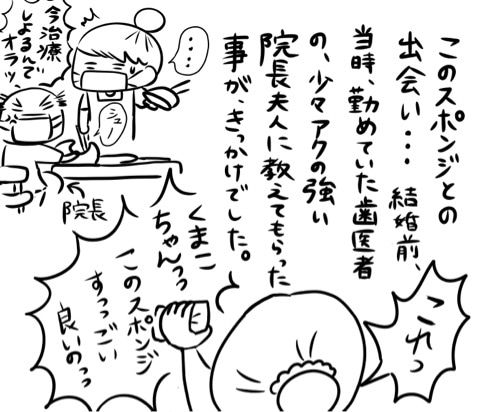 このスポンジとの
出会い・・・ 結婚前、
当時、勤めていた歯医者
の、少々アクの強い
院長夫人に教えてもらった
事が、きっかけでした。
・・・
今治療
しよるんで
オラッ
院長
これっ
くまこ
ちゃんっっ
このスポンジ
すっっごい
良いのっっ